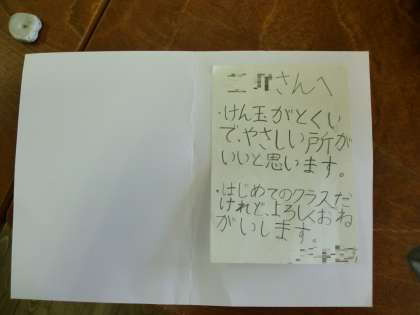 さんへ
・けん玉がとくい
で、やさしい所が
いいと思います。
・はじめてのクラスだ
けれど、よろしくおね
がいします。